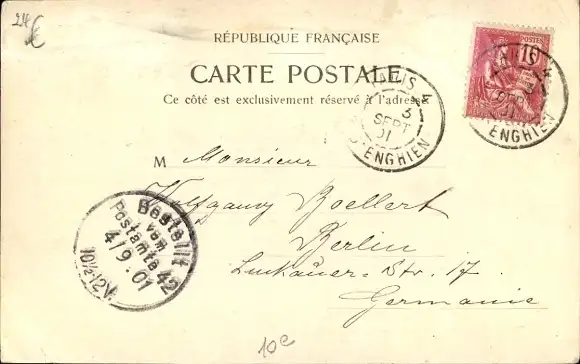 24€
RÉPUBLIQUE FRANÇAISE
CARTE POSTALE
Ce côté est exclusivement réservé à l'adresse
POSTES
10
PARIS 4
3
SEPT
01
D'ENGHIEN
PARIS 4
3
SEPT
01
D'ENGHIEN
M Monsieur
Wolfgang Boellert
Berlin
Luckauer-Str. 17
Germanie
Bestellt
vom
Postamte 42
4/9.01
10½-12V
10c